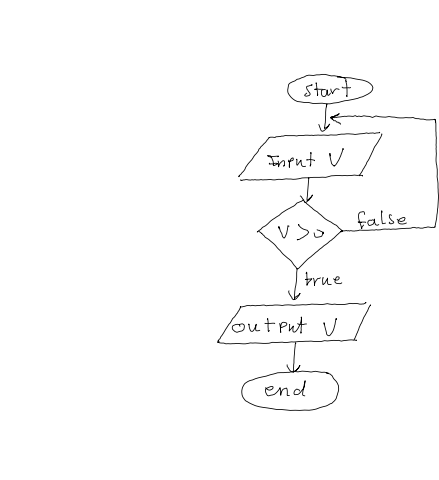 start
Input V
V>0
false
true
output V
end